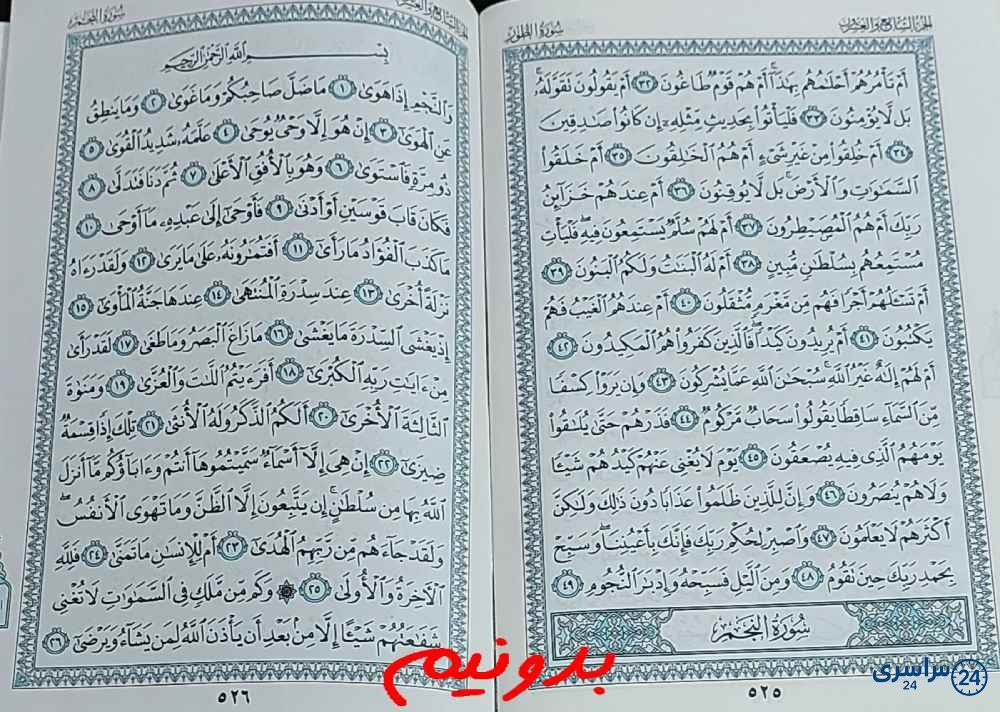 الجزء السابع والعشرون
سورة الطور
أَمْ تَأْمُرُهُمْ أَحْلَٰمُهُم بِهَٰذَآ ۚ أَمْ هُمْ قَوْمٌ طَاغُونَ ٣٢ أَمْ يَقُولُونَ تَقَوَّلَهُۥ ۚ
بَل لَّا يُؤْمِنُونَ ٣٣ فَلْيَأْتُوا۟ بِحَدِيثٍ مِّثْلِهِۦٓ إِن كَانُوا۟ صَٰدِقِينَ
٣٤ أَمْ خُلِقُوا۟ مِنْ غَيْرِ شَىْءٍ أَمْ هُمُ ٱلْخَٰلِقُونَ ٣٥ أَمْ خَلَقُوا۟
ٱلسَّمَٰوَٰتِ وَٱلْأَرْضَ ۚ بَل لَّا يُوقِنُونَ ٣٦ أَمْ عِندَهُمْ خَزَآئِنُ
رَبِّكَ أَمْ هُمُ ٱلْمُصَۣيْطِرُونَ ٣٧ أَمْ لَهُمْ سُلَّمٌ يَسْتَمِعُونَ فِيهِ ۖ فَلْيَأْتِ
مُسْتَمِعُهُم بِسُلْطَٰنٍ مُّبِينٍ ٣٨ أَمْ لَهُ ٱلْبَنَٰتُ وَلَكُمُ ٱلْبَنُونَ ٣٩
أَمْ تَسْـَٔلُهُمْ أَجْرًا فَهُم مِّن مَّغْرَمٍ مُّثْقَلُونَ ٤٠ أَمْ عِندَهُمُ ٱلْغَيْبُ فَهُمْ
يَكْتُبُونَ ٤١ أَمْ يُرِيدُونَ كَيْدًا ۖ فَٱلَّذِينَ كَفَرُوا۟ هُمُ ٱلْمَكِيدُونَ ٤٢
أَمْ لَهُمْ إِلَٰهٌ غَيْرُ ٱللَّهِ ۚ سُبْحَٰنَ ٱللَّهِ عَمَّا يُشْرِكُونَ ٤٣ وَإِن يَرَوْا۟ كِسْفًا
مِّنَ ٱلسَّمَآءِ سَاقِطًا يَقُولُوا۟ سَحَابٌ مَّرْكُومٌ ٤٤ فَذَرْهُمْ حَتَّىٰ يُلَٰقُوا۟
يَوْمَهُمُ ٱلَّذِى فِيهِ يُصْعَقُونَ ٤٥ يَوْمَ لَا يُغْنِى عَنْهُمْ كَيْدُهُمْ شَيْـًٔا
وَلَا هُمْ يُنصَرُونَ ٤٦ وَإِنَّ لِلَّذِينَ ظَلَمُوا۟ عَذَابًا دُونَ ذَٰلِكَ وَلَٰكِنَّ
أَكْثَرَهُمْ لَا يَعْلَمُونَ ٤٧ وَٱصْبِرْ لِحُكْمِ رَبِّكَ فَإِنَّكَ بِأَعْيُنِنَا ۖ وَسَبِّحْ
بِحَمْدِ رَبِّكَ حِينَ تَقُومُ ٤٨ وَمِنَ ٱلَّيْلِ فَسَبِّحْهُ وَإِدْبَٰرَ ٱلنُّجُومِ ٤٩
سورة النجم
٥٢٥
الجزء السابع والعشرون
سورة النجم
بِسْمِ ٱللَّهِ ٱلرَّحْمَٰنِ ٱلرَّحِيمِ
وَٱلنَّجْمِ إِذَا هَوَىٰ ١ مَا ضَلَّ صَاحِبُكُمْ وَمَا غَوَىٰ ٢ وَمَا يَنطِقُ
عَنِ ٱلْهَوَىٰٓ ٣ إِنْ هُوَ إِلَّا وَحْىٌ يُوحَىٰ ٤ عَلَّمَهُۥ شَدِيدُ ٱلْقُوَىٰ ٥
ذُو مِرَّةٍ فَٱسْتَوَىٰ ٦ وَهُوَ بِٱلْأُفُقِ ٱلْأَعْلَىٰ ٧ ثُمَّ دَنَا فَتَدَلَّىٰ ٨
فَكَانَ قَابَ قَوْسَيْنِ أَوْ أَدْنَىٰ ٩ فَأَوْحَىٰٓ إِلَىٰ عَبْدِهِۦ مَآ أَوْحَىٰ ١٠
مَا كَذَبَ ٱلْفُؤَادُ مَا رَأَىٰٓ ١١ أَفَتُمَٰرُونَهُۥ عَلَىٰ مَا يَرَىٰ ١٢ وَلَقَدْ رَءَاهُ
نَزْلَةً أُخْرَىٰ ١٣ عِندَ سِدْرَةِ ٱلْمُنتَهَىٰ ١٤ عِندَهَا جَنَّةُ ٱلْمَأْوَىٰٓ ١٥
إِذْ يَغْشَى ٱلسِّدْرَةَ مَا يَغْشَىٰ ١٦ مَا زَاغَ ٱلْبَصَرُ وَمَا طَغَىٰ ١٧ لَقَدْ رَأَىٰ
مِنْ ءَايَٰتِ رَبِّهِ ٱلْكُبْرَىٰٓ ١٨ أَفَرَءَيْتُمُ ٱللَّٰتَ وَٱلْعُزَّىٰ ١٩ وَمَنَوٰةَ
ٱلثَّالِثَةَ ٱلْأُخْرَىٰٓ ٢٠ أَلَكُمُ ٱلذَّكَرُ وَلَهُ ٱلْأُنثَىٰ ٢١ تِلْكَ إِذًا قِسْمَةٌ
ضِيزَىٰٓ ٢٢ إِنْ هِىَ إِلَّآ أَسْمَآءٌ سَمَّيْتُمُوهَآ أَنتُمْ وَءَابَآؤُكُم مَّآ أَنزَلَ
ٱللَّهُ بِهَا مِن سُلْطَٰنٍ ۚ إِن يَتَّبِعُونَ إِلَّا ٱلظَّنَّ وَمَا تَهْوَى ٱلْأَنفُسُ ۖ
وَلَقَدْ جَآءَهُم مِّن رَّبِّهِمُ ٱلْهُدَىٰٓ ٢٣ أَمْ لِلْإِنسَٰنِ مَا تَمَنَّىٰ ٢٤ فَلِلَّهِ
ٱلْءَاخِرَةُ وَٱلْأُولَىٰ ٢٥ ۞ وَكَم مِّن مَّلَكٍ فِى ٱلسَّمَٰوَٰتِ لَا تُغْنِى
شَفَٰعَتُهُمْ شَيْـًٔا إِلَّا مِنۢ بَعْدِ أَن يَأْذَنَ ٱللَّهُ لِمَن يَشَآءُ وَيَرْضَىٰٓ ٢٦
٥٢٦
بدونیم
سراسری 24
24